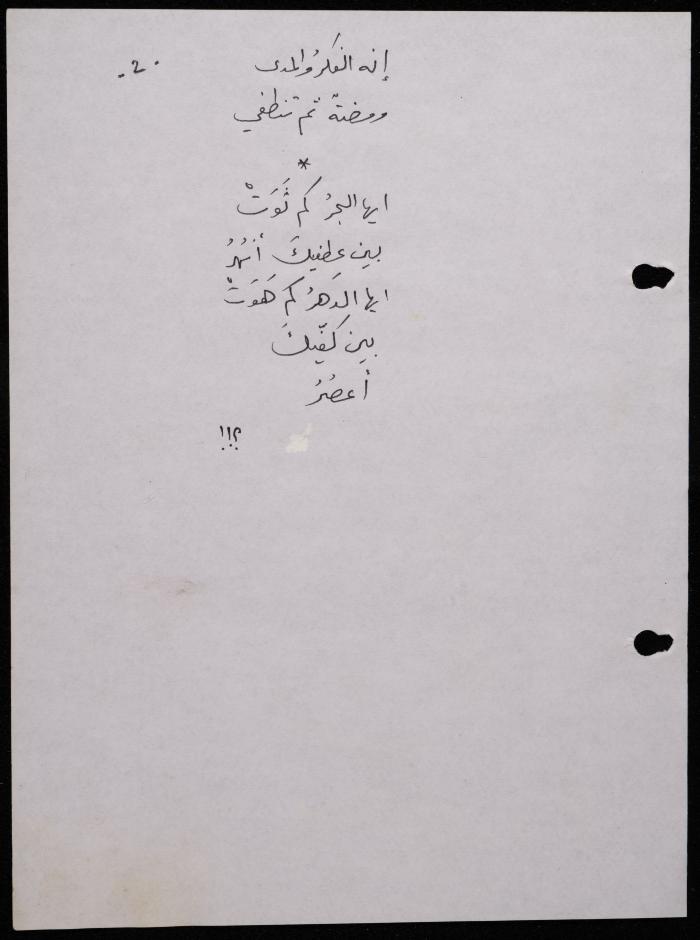 .2.
إنه الفكرُ والمدى
ومضةٌ ثم تنطفي
*
ايها البحرُ كم ثَوَتْ
بين عطفيكَ أنهُرُ
ايها الدَهرُ كم هَوَتْ
بين كفّيكَ
أعصُرُ
؟!!